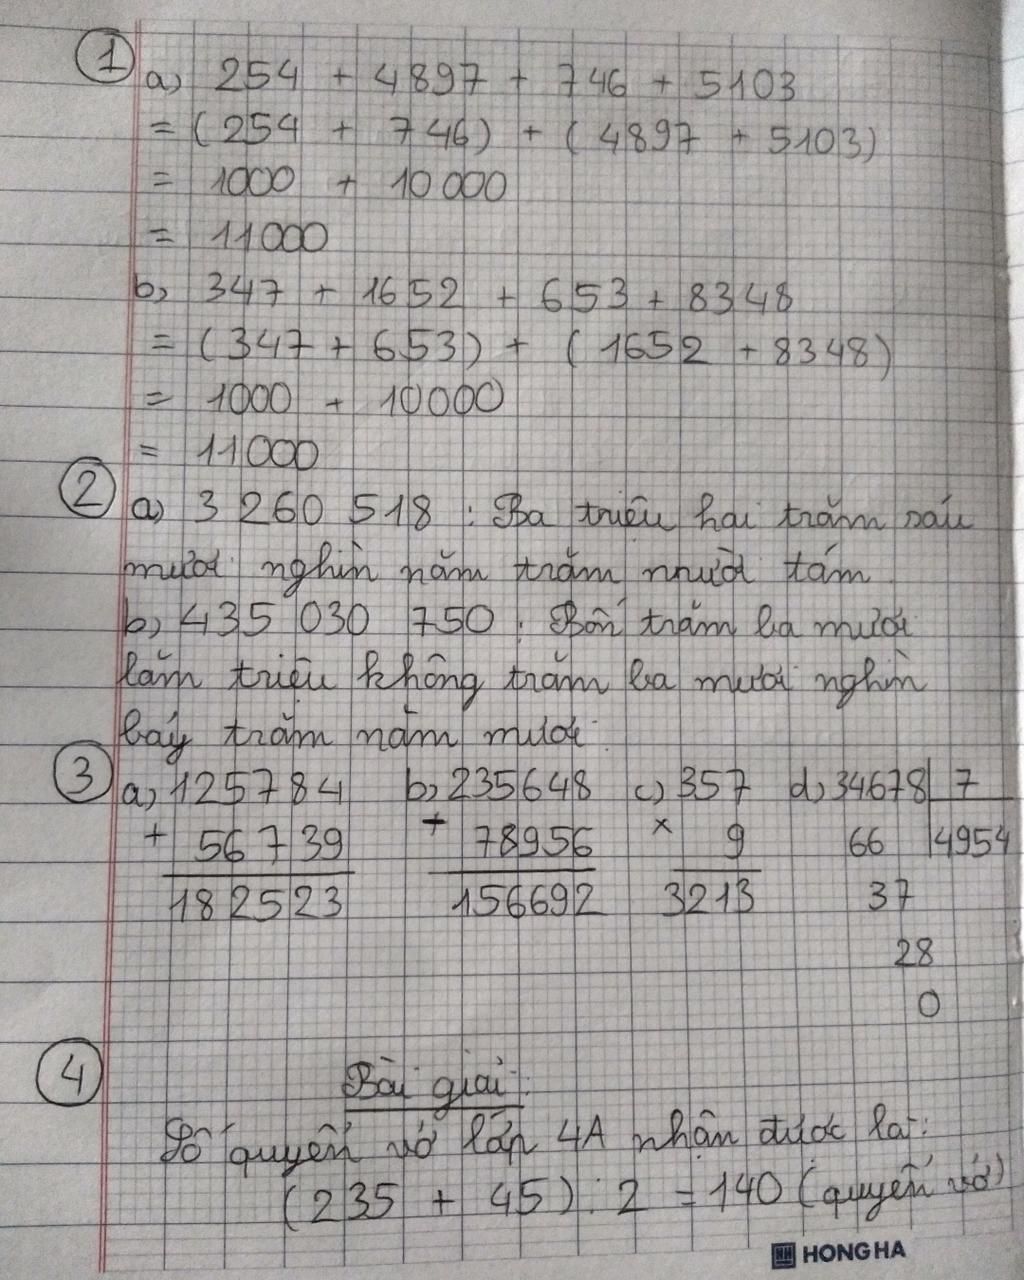 1
a) 254 + 4897 + 746 + 5103
= (254 + 746) + (4897 + 5103)
= 1000 + 10 000
= 11000
b) 347 + 1652 + 653 + 8348
= (347 + 653) + (1652 + 8348)
= 1000 + 10000
= 11000
2
a) 3 260 518 : Ba triệu hai trăm sáu
mươi nghìn năm trăm mười tám
b) 435 030 750 : Bốn trăm ba mươi
lăm triệu không trăm ba mươi nghìn
bảy trăm năm mươi
3
a) 125784 b) 235648 c) 357 d) 34678 7
+ 56 739 + 78956 x 9 66 4954
182523 156692 3213 37
28
0
4
Bài giải:
Số quyển vở lớp 4A nhận được là:
(235 + 45) : 2 = 140 (quyển vở)
HONG HA